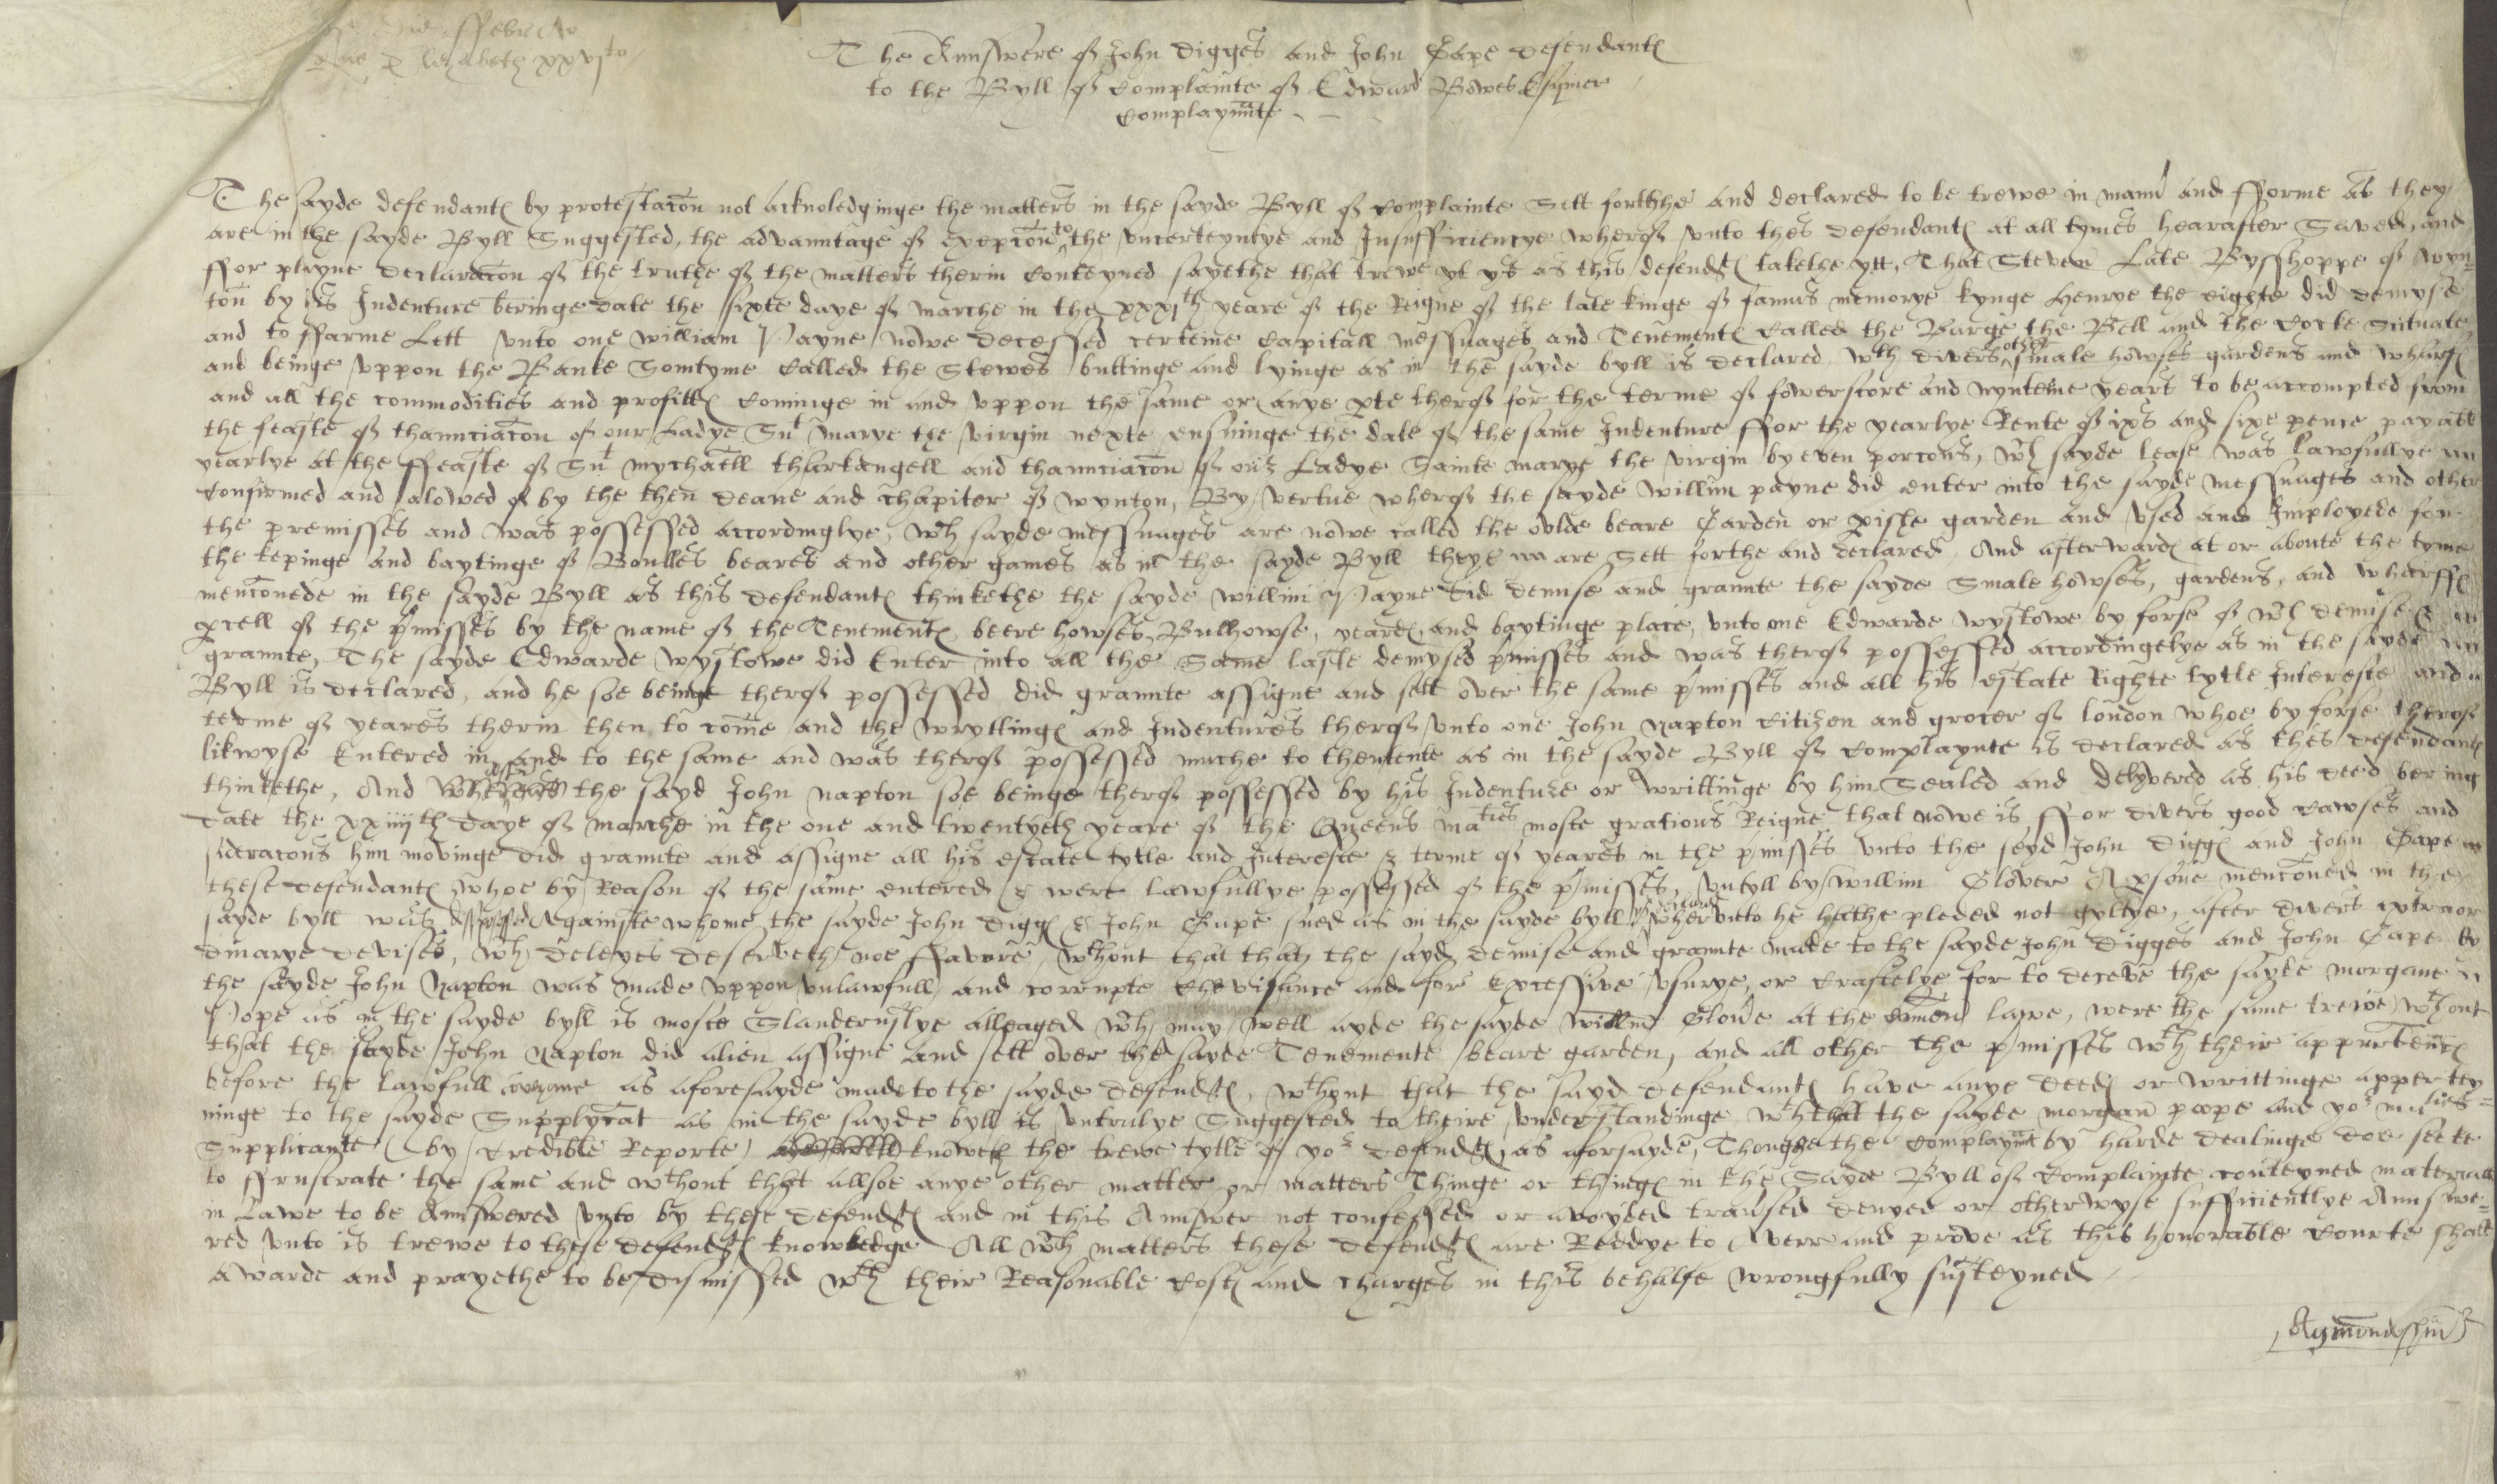 ffebr
Elizabeth xxvjto
The Aunswere of John Digges and John Cape defendantes
to the Byll of Complainte of Edward Bowes Esquier
Complaynante
The sayde defendantes by protestacon not acknoledginge the matters in the sayde Byll of Complainte Sett forthhe and declared to be trewe in mann and fforme as they
are in the sayde Byll Suggested, the advauntage of excepcon to the uncerteyntye and Insufficiencye wherof unto thes defendantes at all tymes hearafter Saved, and
ffor playne declaracon of the truthe of the matters therin Conteyned sayethe that trewe yt ys as this defendtes takethe ytt, That Steven Late Bysshoppe of Wyn=
ton by his Indenture beringe date the sixte daye of Marche in the xxxjth yeare of the Reigne of the late kinge of famus memorye kynge Henrye the eighte did demyse
and to ffarme Lett unto one William Payne nowe decessed certeine Capitall messuages and Tenementes Called the Barge the Bell and the Cocke Scituate
and beinge uppon the Banke Somtyme Called the Stewes buttinge and lyinge as in the sayde byll is declared wth divers other smale howses gardens and wharfes
and all the commodities and profittes Cominge in and uppon the same or anye pte therof for the terme of fowerscore and nynteine years to be accompted from
the feaste of thannciacon of our Ladye Snt Marye the virgin nexte ensuinge the date of the same Indenture ffor the yearlye Rente of ixs and sixe pence payable
yearlye at the ffeaste of Snt mychaell thArkangell and thannciacon of our Ladye Sainte marye the virgin by even porcons, wch sayde lease was lawfullye
Confirmed and alowed of by the then deane and Chapiter of Wynton, By vertue wherof the sayde Willim payne did enter into the sayde messuages and other
the premisses and was possessed accordinglye, wch sayde messuages are nowe called the oulde beare Garden or Parishe garden and used and Imployede for
the kepinge and baytinge of Boulles beares and other games as in the sayde Byll theye are Sett forthe and declared And afterwardes at or aboute the tyme
mencionede in the sayde Byll as this defendantes thinkethe the sayde Willim Payne did demise and graunte the sayde Smale howses, gardens, and wharffes
pcell of the pmisses by the name of the Tenementes beere howses, Bulhowse, yeardes, and baytinge place, unto one Edwarde Wystowe by forse of wch demise &
graunte, The sayde Edwarde Wystowe did Enter into all the Same laste demysed pmisses and was therof possessed accordingelye as in the sayde
Byll is declared, and he soe beinge therof possessed did graunte assigne and sett over the same pmisses and all his estate Righte tytle Intereste and
terme of yeares therin then to come and the wryttinges and Indentures therof unto one John Napton Citizen and grocer of london whoe by forse therof
likwyse Entered in and to the same and was therof possessed muche to thentente as in the sayde Byll of Complaynte is declared as thes defendantes
thinkethe, And after the sayd John Napton soe beinge therof possessed by his Indenture or writtinge by him Sealed and delyvered as his deed bering
date the xxiiijth daye of Marche in the one and twentyeth yeare of the Queens maties moste gratious Reigne that nowe is ffor divers good Cawses and
sideracons him movinge did graunte and assigne all his estate tytle and Intereste & terme of yeares in the pmisses unto the seyd John Digges and John Cape
these defendantes whoe by Reason of the same entered & were lawfullye possessed of the pmisses, untyll by Willim Glover A psone mencioned in the
sayde byll was dispossessed Againste whome the sayde John Digges & John Cape sued as in the sayde byll wherunto he hathe pleded not gyltye, after divers extraor
dinarye devises, wch deleyes deserveth noe ffavore, wthout that that the sayd demise and graunte made to the sayde John Digges and John Cape by
the sayde John Napton was made uppon unlawfull and corrupte Chevisance and for excessive usurye, or Craftelye for to deceve the sayde morgane
Pope as in the sayde byll is moste Slanderuslye alleaged wch may well ayde the sayde Willm Glover at the comen lawe, were the same trewe, wthout
that the sayde John Napton did alien assigne and sett over the sayde Tenemente beare garden, and all other the pmisses wth their appurtences
before the lawfull as aforesayde made to the sayde defendtes, wthout that the sayd defendantes have anye deedes or writtinge appertey
ninge to the sayde Supplycat as in the sayde byll is untrulye Suggested to theire understandinge wth that the sayde morgan pope and yor maties
Supplicante (by Credible Reporte) knoweth the trewe tytle of yor defendtes as aforsayde, Thoughe the Complaynant by harde dealinge doe seeke
to ffrustrate the same and wthout that allsoe anye other matter or matters Thinge or thinges in the Sayde Byll of Complainte conteyned materiall
in Lawe to be Answered unto by these defendtes and in this Answer not confessed or avoyded traused denyed or otherwyse sufficientlye Answe=
red unto is trewe to these defendtes knowledge All wch matters these defendtes are Reddye to Averr and prove as this honorable Courte shall
awarde and prayethe to be dismissed wth their Reasonable Costes and Charges in this behalfe wrongfully susteyned